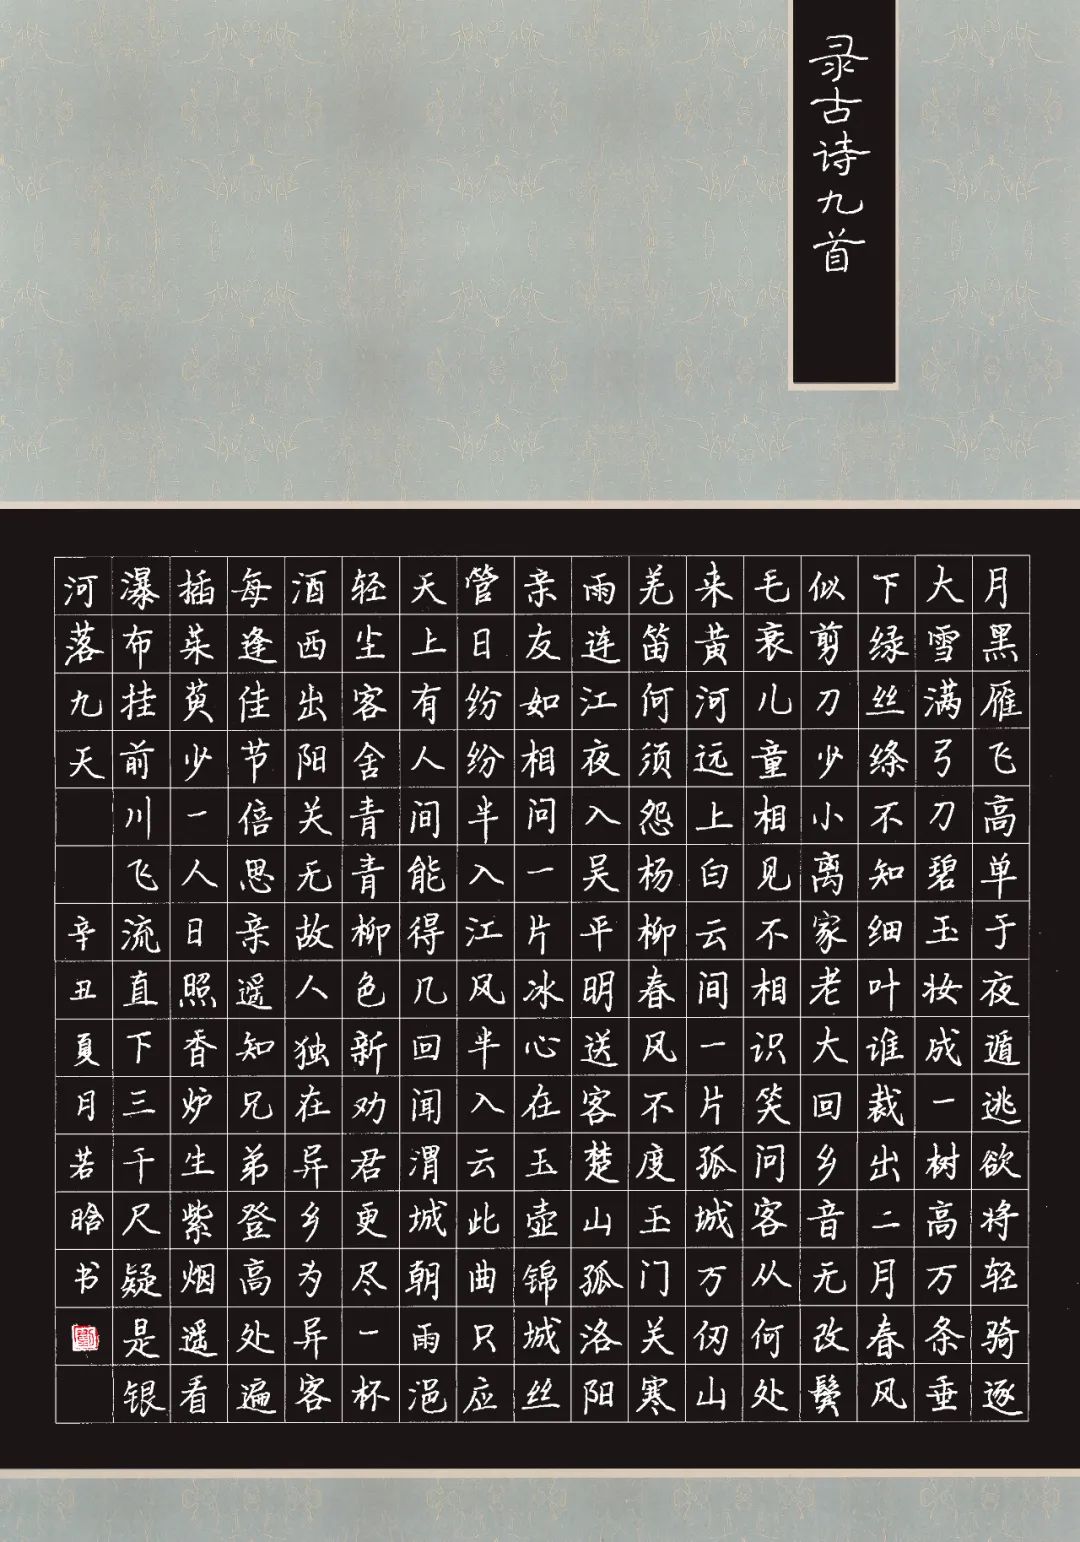 录古诗九首
月黑雁飞高单于夜遁逃欲将轻骑逐
大雪满弓刀碧玉妆成一树高万条垂
下绿丝绦不知细叶谁裁出二月春风
似剪刀少小离家老大回乡音无改鬓
毛衰儿童相见不相识笑问客从何处
来黄河远上白云间一片孤城万仞山
羌笛何须怨杨柳春风不度玉门关寒
雨连江夜入吴平明送客楚山孤洛阳
亲友如相问一片冰心在玉壶锦城丝
管日纷纷半入江风半入云此曲只应
天上有人间能得几回闻渭城朝雨浥
轻尘客舍青青柳色新劝君更尽一杯
酒西出阳关无故人独在异乡为异客
每逢佳节倍思亲遥知兄弟登高处遍
插茱萸少一人日照香炉生紫烟遥看
瀑布挂前川飞流直下三千尺疑是银
河落九天 辛丑夏月若晗书